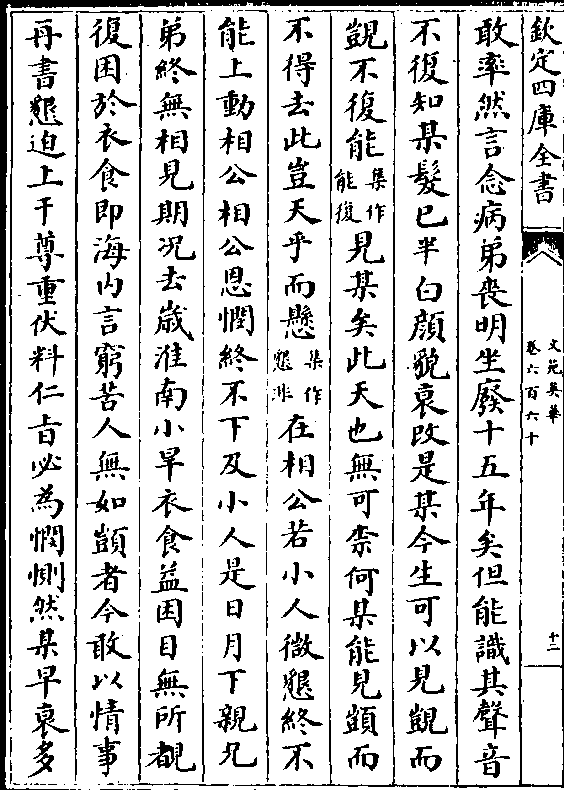 欽定四庫全書
文苑英華
卷六百六十
十二
敢率然言念病弟喪明坐廢十五年矣但能識其聲音
不復知某髮已半白顔貌衰改是某今生可以見覬而
覬不復能集作能復見某矣此天也無可柰何某能見顗而
不得去此豈天乎而懸集作懇非在相公若小人微懇終不
能上動相公相公恩憫終不下及小人是日月下親兄
弟終無相見期况去嵗淮南小旱衣食益困目無所覩
復困於衣食即海内言窮苦人無如顗者今敢以情事
再書懇迫上干尊重伏料仁旨必為憫惻然某早衰多